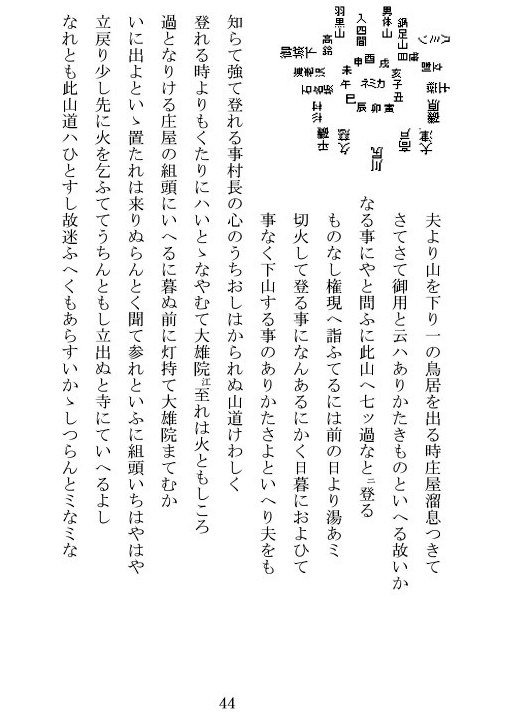 夫より山を下り一の鳥居を出る時庄屋溜息つきて
さてさて御用と云ハありかたきものといへる故いか
なる事にやと問ふに此山へ七ッ過なとニ登る
ものなし権現へ詣ふてるには前の日より湯あミ
切火して登る事になんあるにかく日暮におよひて
事なく下山する事のありかたさよといへり夫をも
知らて強て登れる事村長の心のうちおしはかられぬ山道けわしく
登れる時よりもくたりにハいとゝなやむて大雄院江至れは火ともしころ
過となりける庄屋の組頭にいへるに暮ぬ前に灯持て大雄院まてむか
いに出よといゝ置たれは来りぬらんとく聞て参れといふに組頭いちはやはや
立戻り少し先に火を乞ふててうちんともし立出ぬと寺にていへるよし
なれとも此山道ハひとすし故迷ふへくもあらすいかゝしつらんとミなミな
男体山
入四間
羽黒山
鍋足山
高鈴
戌
酉
申
未
午
巳
辰
卯
寅
丑
子
亥
ネミカ
川尻
高戸
大津
原磯
久慈
平磯
44